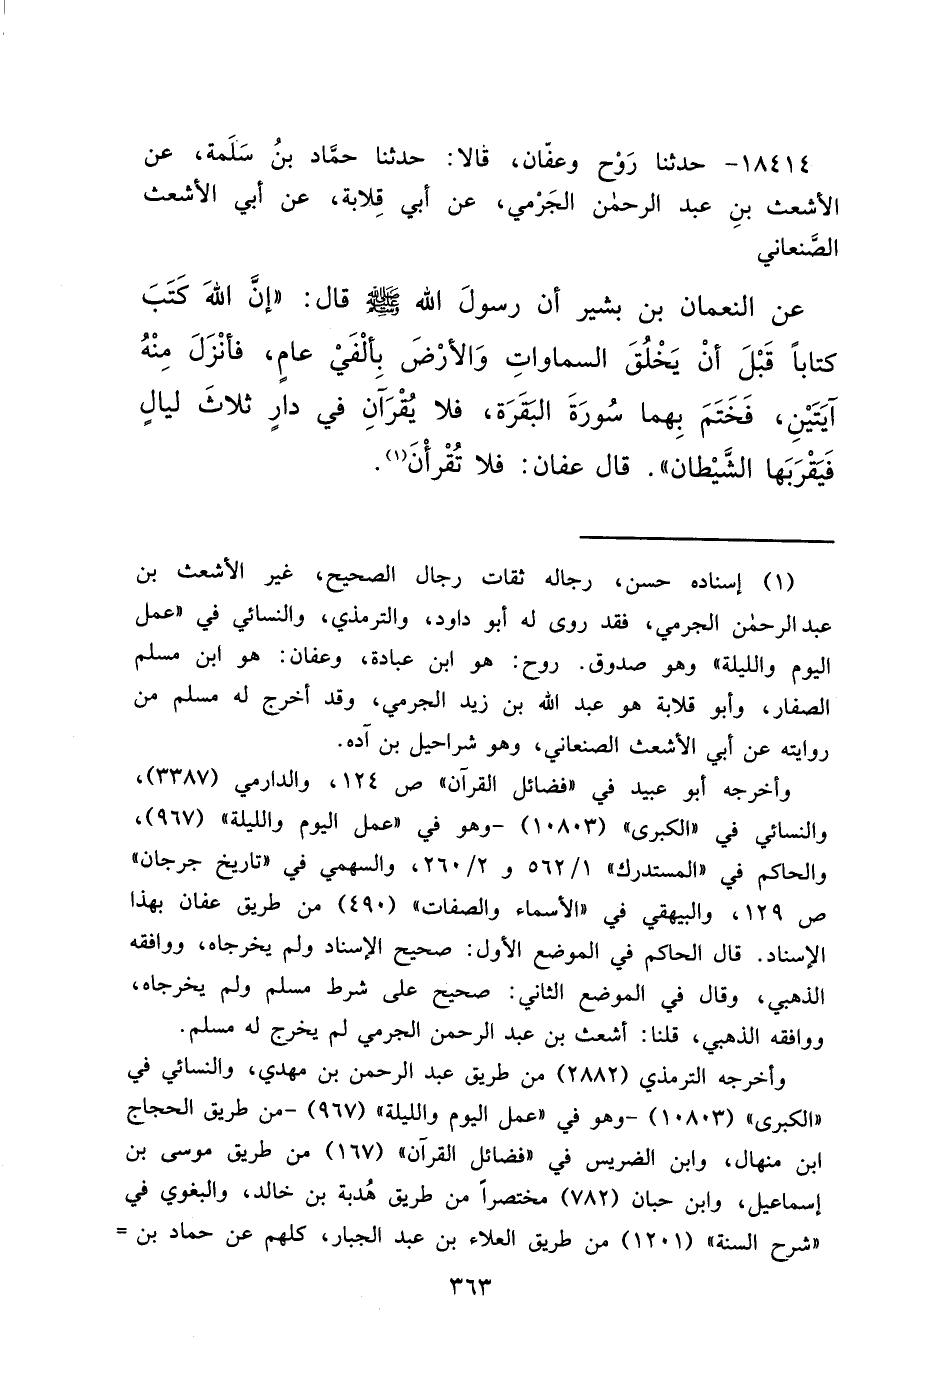 ١٨٤١٤- حدثنا رَوْح وعفّان، قالا: حدثنا حمَّاد بنُ سَلَمة، عن
الأشعث بنِ عبد الرحمٰن الجَرْمي، عن أبي قِلابة، عن أبي الأشعث
الصَّنعاني
عن النعمان بن بشير أن رسولَ الله ﷺ قال: «إنَّ اللهَ كَتَبَ
كتاباً قَبْلَ أنْ يَخْلُقَ السماواتِ وَالأرْضَ بِألْفَيْ عامٍ، فأنْزَلَ مِنْهُ
آيَتَيْنِ، فَخَتَمَ بِهما سُورَةَ البَقَرَة، فلا يُقْرَآنِ في دارٍ ثلاثَ ليالٍ
فَيَقْرَبَها الشَّيْطان». قال عفان: فلا تُقْرأْنَ(١).
(١) إسناده حسن، رجاله ثقات رجال الصحيح، غير الأشعث بن
عبد الرحمٰن الجرمي، فقد روى له أبو داود، والترمذي، والنسائي في «عمل
اليوم والليلة» وهو صدوق. روح: هو ابن عبادة، وعفان: هو ابن مسلم
الصفار، وأبو قلابة هو عبد الله بن زيد الجرمي، وقد أخرج له مسلم من
روايته عن أبي الأشعث الصنعاني، وهو شراحيل بن آده.
وأخرجه أبو عبيد في «فضائل القرآن» ص ١٢٤، والدارمي (٣٣٨٧)،
والنسائي في «الكبرى» (١٠٨٠٣) -وهو في «عمل اليوم والليلة» (٩٦٧)،
والحاكم في «المستدرك» ٥٦٢/١ و ٢٦٠/٢، والسهمي في «تاريخ جرجان»
ص ١٢٩، والبيهقي في «الأسماء والصفات» (٤٩٠) من طريق عفان بهذا
الإسناد. قال الحاكم في الموضع الأول: صحيح الإسناد ولم يخرجاه، ووافقه
الذهبي، وقال في الموضع الثاني: صحيح على شرط مسلم ولم يخرجاه،
ووافقه الذهبي، قلنا: أشعث بن عبد الرحمن الجرمي لم يخرج له مسلم.
وأخرجه الترمذي (٢٨٨٢) من طريق عبد الرحمن بن مهدي، والنسائي في
«الكبرى» (١٠٨٠٣) -وهو في «عمل اليوم والليلة» (٩٦٧) -من طريق الحجاج
ابن منهال، وابن الضريس في «فضائل القرآن» (١٦٧) من طريق موسى بن
إسماعيل، وابن حبان (٧٨٢) مختصراً من طريق هُدبة بن خالد، والبغوي في
«شرح السنة» (١٢٠١) من طريق العلاء بن عبد الجبار، كلهم عن حماد بن =
٣٦٣